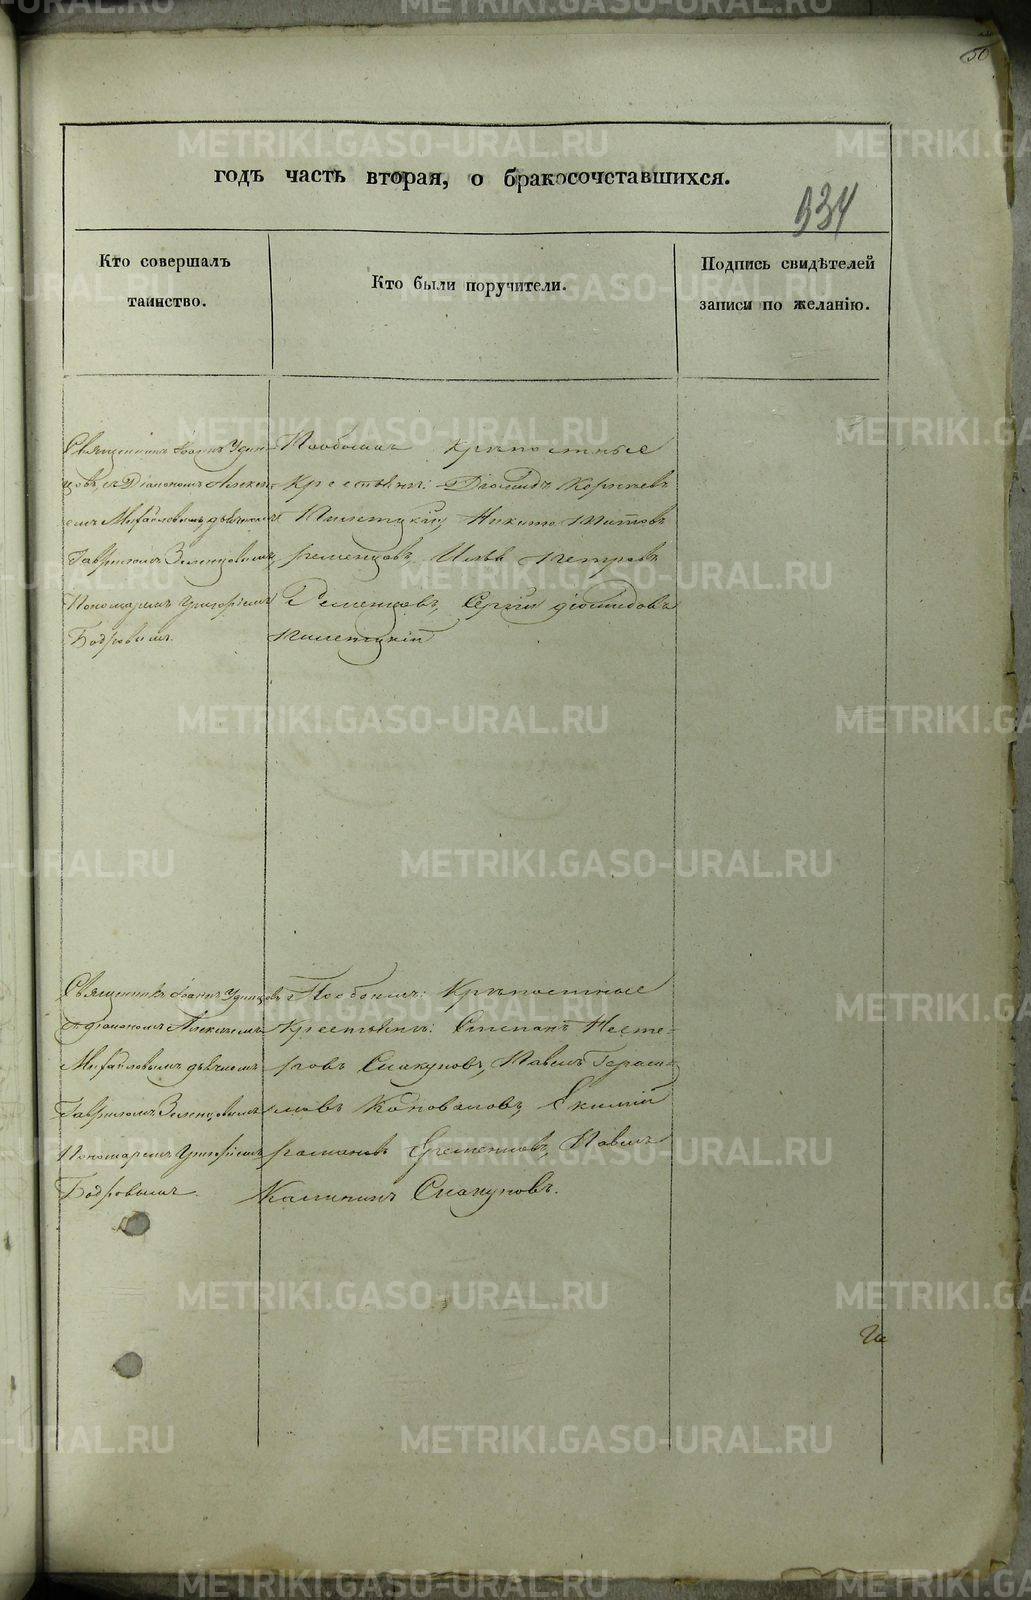 50
годъ часть вторая, о бракосочетавшихся.
934
Кто совершалъ
таинство.
Кто были поручители.
Подпись свидѣтелей
записи по желанію.
Священникъ Іоаннъ Удин-
цовъ, съ Діакономъ Алексѣ-
емъ Михайловымъ, дьячкомъ
Гавріиломъ Зеленцовымъ,
Пономаремъ Григоріемъ
Бодровымъ.
Пообоимъ Крѣпостные
Крестьяне: Діомидъ
Никита Титовъ
Илья Петровъ
Сергѣй Діомидовъ
Священникъ Іоаннъ Удинцовъ
съ діакономъ Алексѣемъ
Михайловымъ дьячкомъ
Гавріиломъ Зеленцовымъ
Пономаремъ Григоріемъ
Бодровымъ.
Пообоимъ: Крѣпостные
Крестьяне: Степанъ Несте-
ровъ Скакуновъ, Павелъ Гераси-
мовъ Коноваловъ, Екимій
Романовъ Еременцовъ, Павелъ
Калининъ Скакуновъ.
METRIKI.GASO-URAL.RU